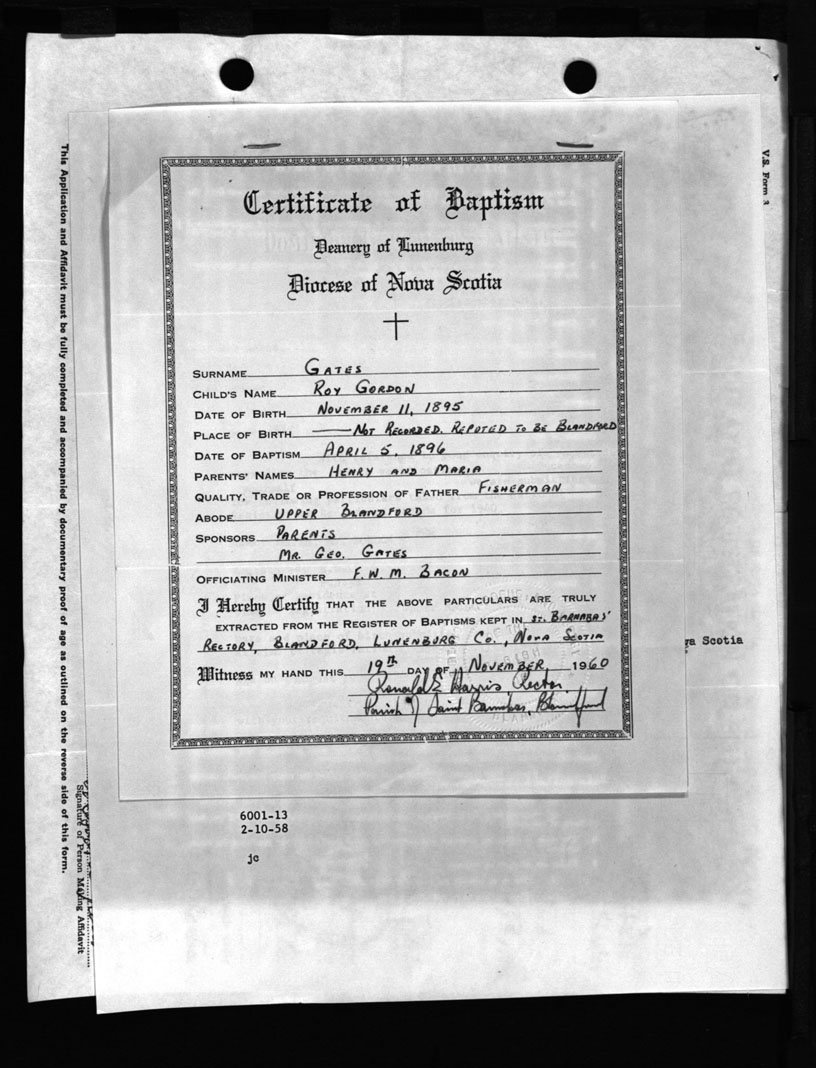 V.S. Form 3
This Application and Affidavit must be fully completed and accompanied by documentary proof of age as outlined on the reverse side of this form.
Certificate of Baptism
Deanery of Lunenburg
Diocese of Nova Scotia
SURNAME GATES
CHILD'S NAME ROY GORDON
DATE OF BIRTH NOVEMBER 11, 1895
PLACE OF BIRTH — NOT RECORDED. REPOTED TO BE BLANDFORD
DATE OF BAPTISM APRIL 5, 1896
PARENTS' NAMES HENRY AND MARIA
QUALITY, TRADE OR PROFESSION OF FATHER FISHERMAN
ABODE UPPER BLANDFORD
SPONSORS PARENTS
MR. GEO. GATES
OFFICIATING MINISTER F. W. M. BACON
I Hereby Certify THAT THE ABOVE PARTICULARS ARE TRULY
EXTRACTED FROM THE REGISTER OF BAPTISMS KEPT IN ST. BARNABAS'
RECTORY, BLANDFORD, LUNENBURG CO., NOVA SCOTIA
Witness MY HAND THIS 19TH DAY OF NOVEMBER 1960
Ronald E Harris Rector,
Parish of Saint Barnabas, Blandford
Scotia
6001-13
2-10-58
jc
Signature of Person Making Affidavit